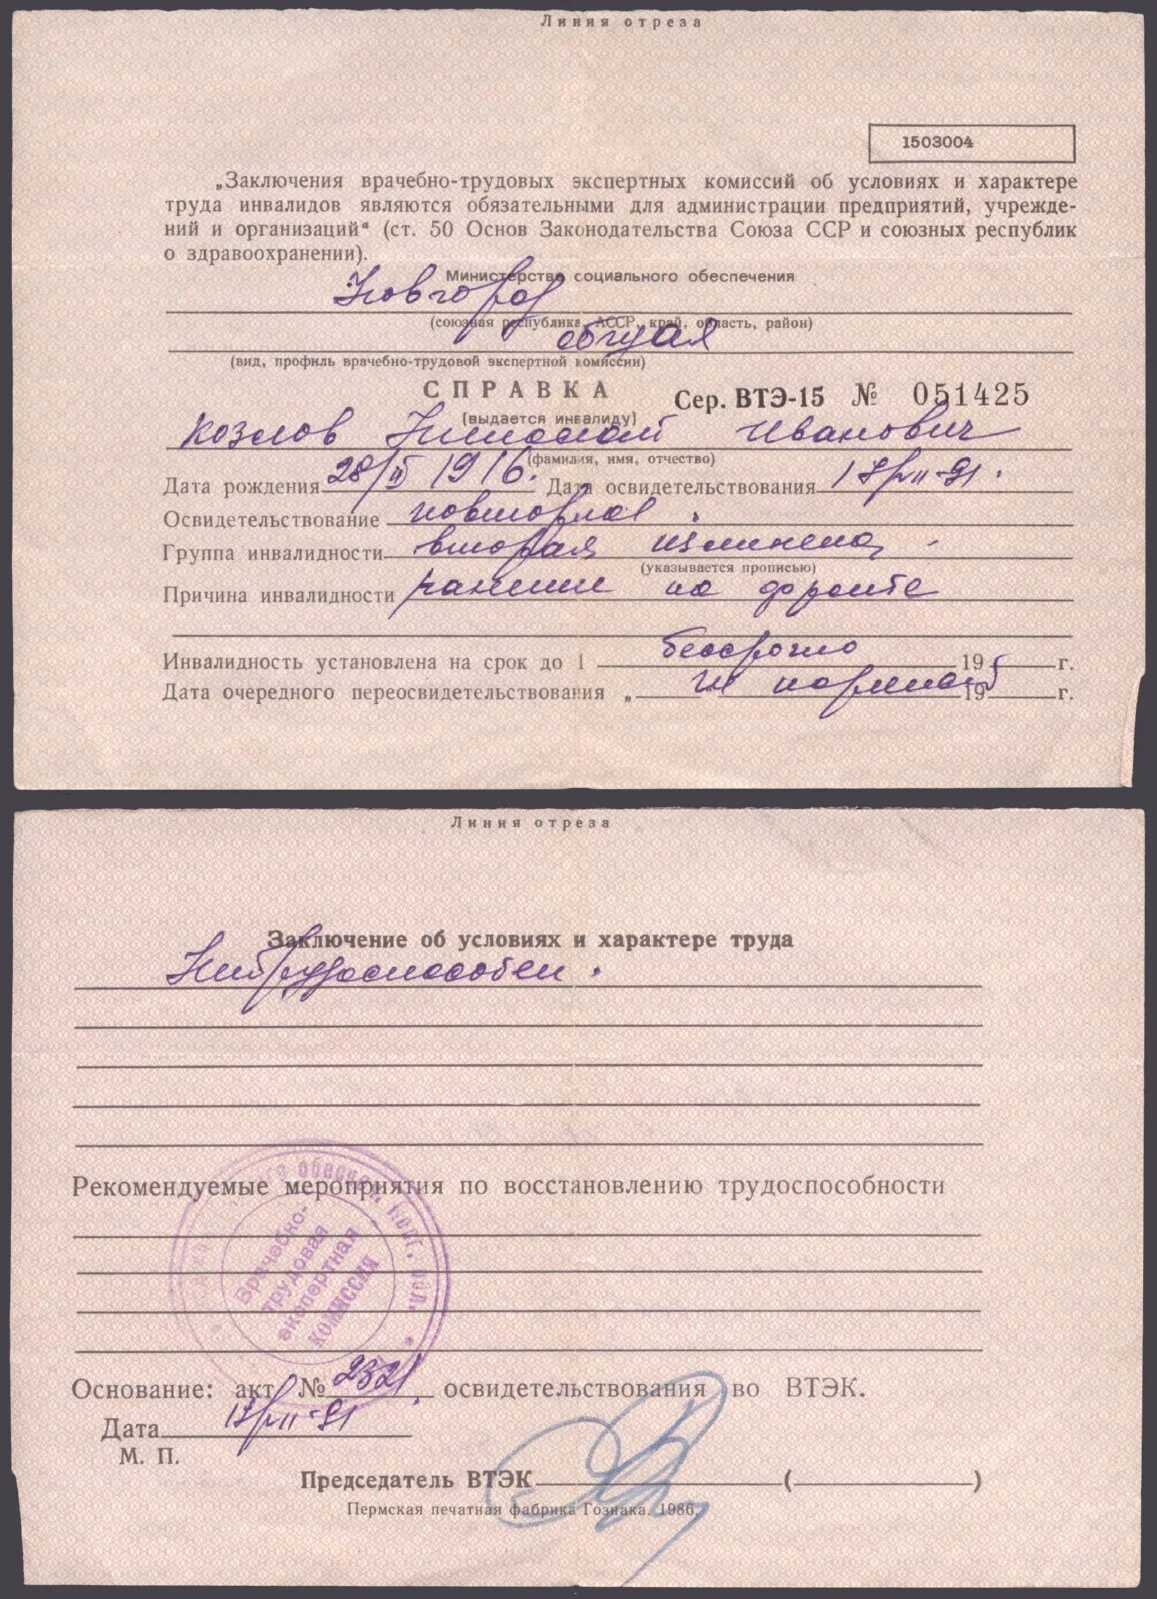 Линия отреза
1503004
„Заключения врачебно-трудовых экспертных комиссий об условиях и характере
труда инвалидов являются обязательными для администрации предприятий, учрежде-
ний и организаций" (ст. 50 Основ Законодательства Союза ССР и союзных республик
о здравоохранении).
Министерство социального обеспечения
Новгород
(союзная республика, АССР, край, область, район)
общая
(вид, профиль врачебно-трудовой экспертной комиссии)
СПРАВКА Сер. ВТЭ-15 № 051425
(выдается инвалиду)
Козлов Иванович
(фамилия, имя, отчество)
Дата рождения 28/ 1916. Дата освидетельствования 17/VII-91.
Освидетельствование повторное
Группа инвалидности вторая
(указывается прописью)
Причина инвалидности ранение на фронте
Инвалидность установлена на срок до 1 бессрочно 19 г.
Дата очередного переосвидетельствования „ 19 г.
Линия отреза
Заключение об условиях и характере труда
Нетрудоспособен.
Рекомендуемые мероприятия по восстановлению трудоспособности
обеспеч. обл.
Врачебно-
трудовая
экспертная
комиссия
Основание: акт № 2321 освидетельствования во ВТЭК.
Дата 17/VII-91
М. П.
Председатель ВТЭК ( )
Пермская печатная фабрика Гознака. 1986.